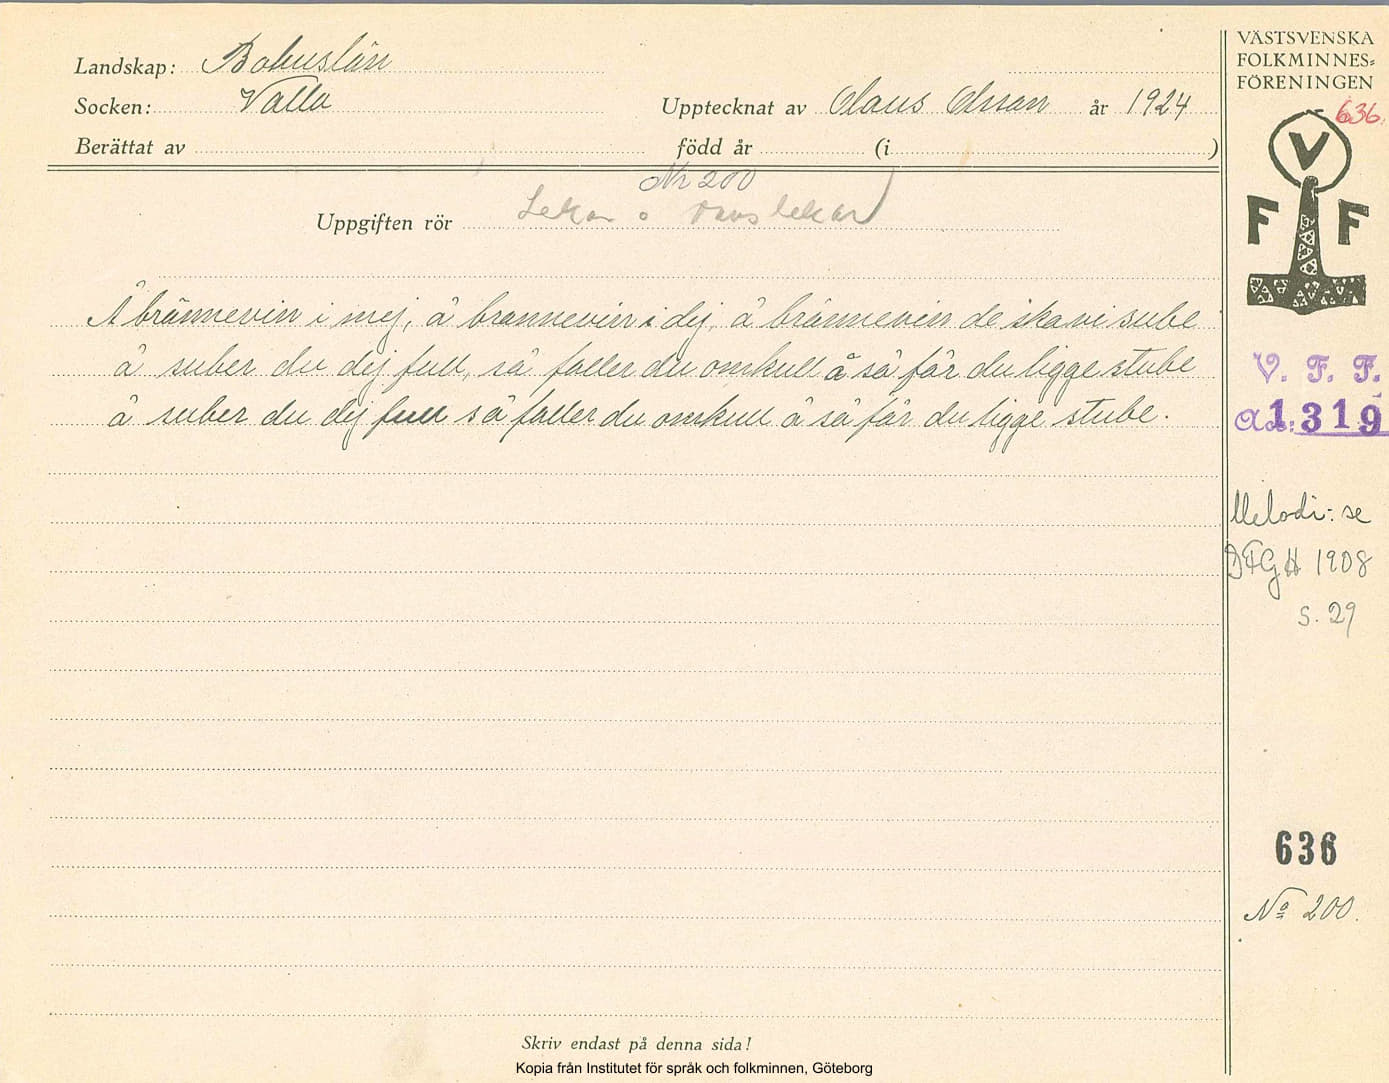 Landskap: Bohuslän
Socken: Valla
Upptecknat av Olaus Olsson år 1924
Berättat av
född år (i )
Nr 200
Uppgiften rör Lekar o danslekar
Å brännevin i mej, å brännevin i dej, å brännevin de ska vi sube
å suber du dej full, så faller du omkull å så får du ligge stube
å suber du dej full så faller du omkull å så får du ligge stube.
Skriv endast på denna sida!
Kopia från Institutet för språk och folkminnen, Göteborg
VÄSTSVENSKA
FOLKMINNES=
FÖRENINGEN
636.
V
F F
V. F. F.
1319
Melodi: se
DFGH 1908
s. 29
636
No 200.